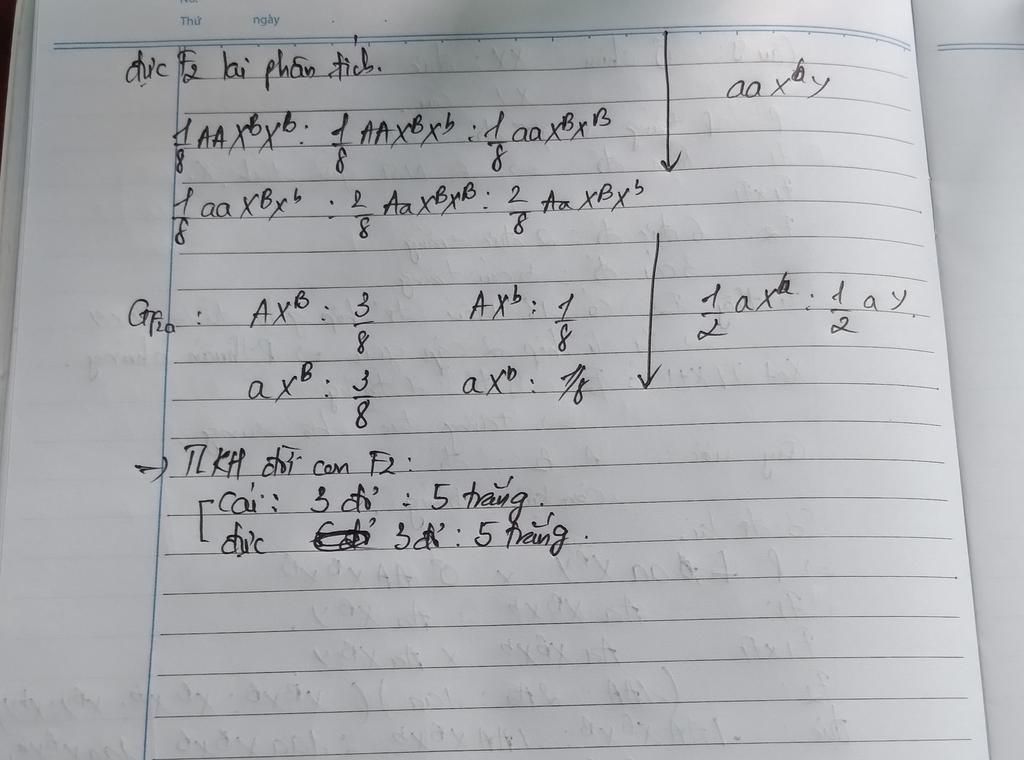 Thứ ngày
đực F2 lai phân tích.
aa X^b y
1/8 AA X^B X^b : 1/8 AA X^B X^b : 1/8 aa X^B X^B
1/8 aa X^B X^b : 2/8 Aa X^B X^B : 2/8 Aa X^B X^b
G F2a : A X^B : 3/8 A X^b : 1/8 1/2 a X^b : 1/2 a y.
a X^B : 3/8 a X^b : 1/8
→ TLKH đời con F2 :
Cái : 3 đỏ : 5 trắng.
đực 3 đỏ : 5 trắng.